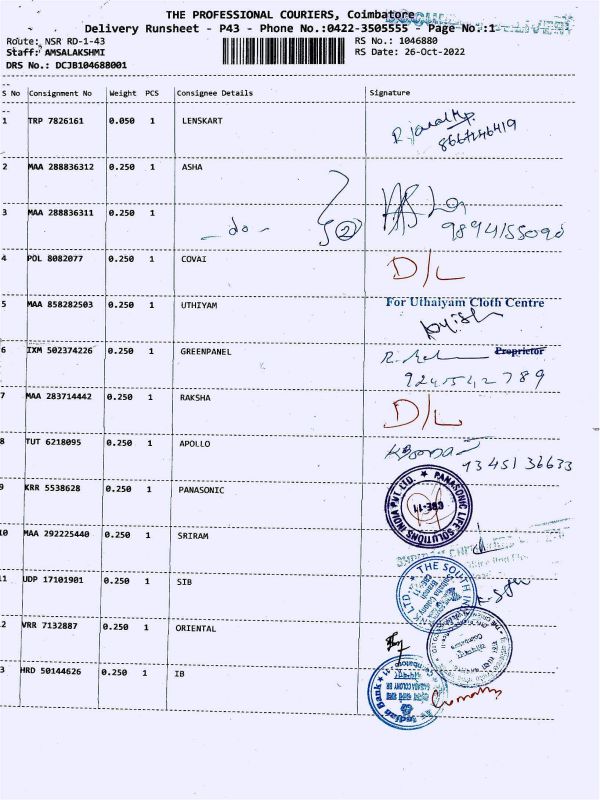 THE PROFESSIONAL COURIERS, Coimbatore
Delivery Runsheet - P43 - Phone No.:0422-3505555 - Page No.:1
Route: NSR RD-1-43 RS No.: 1046880
Staff: AMSALAKSHMI RS Date: 26-Oct-2022
DRS No.: DCJB104688001
S No Consignment No Weight PCS Consignee Details Signature
1 TRP 7826161 0.050 1 LENSKART
2 MAA 288836312 0.250 1 ASHA
3 MAA 288836311 0.250 1 - do - 2
9894155090
4 POL 8082077 0.250 1 COVAI D/L
5 MAA 858282503 0.250 1 UTHIYAM For Uthaiyam Cloth Centre
Proprietor
6 IXM 502374226 0.250 1 GREENPANEL
7 MAA 283714442 0.250 1 RAKSHA D/L
8 TUT 6218095 0.250 1 APOLLO
9 KRR 5538628 0.250 1 PANASONIC PANASONIC LIFE SOLUTIONS INDIA PVT. LTD.
10 MAA 292225440 0.250 1 SRIRAM
11 UDP 17101901 0.250 1 SIB THE SOUTH
2 VRR 7132887 0.250 1 ORIENTAL
3 HRD 50144626 0.250 1 IB Indian Bank